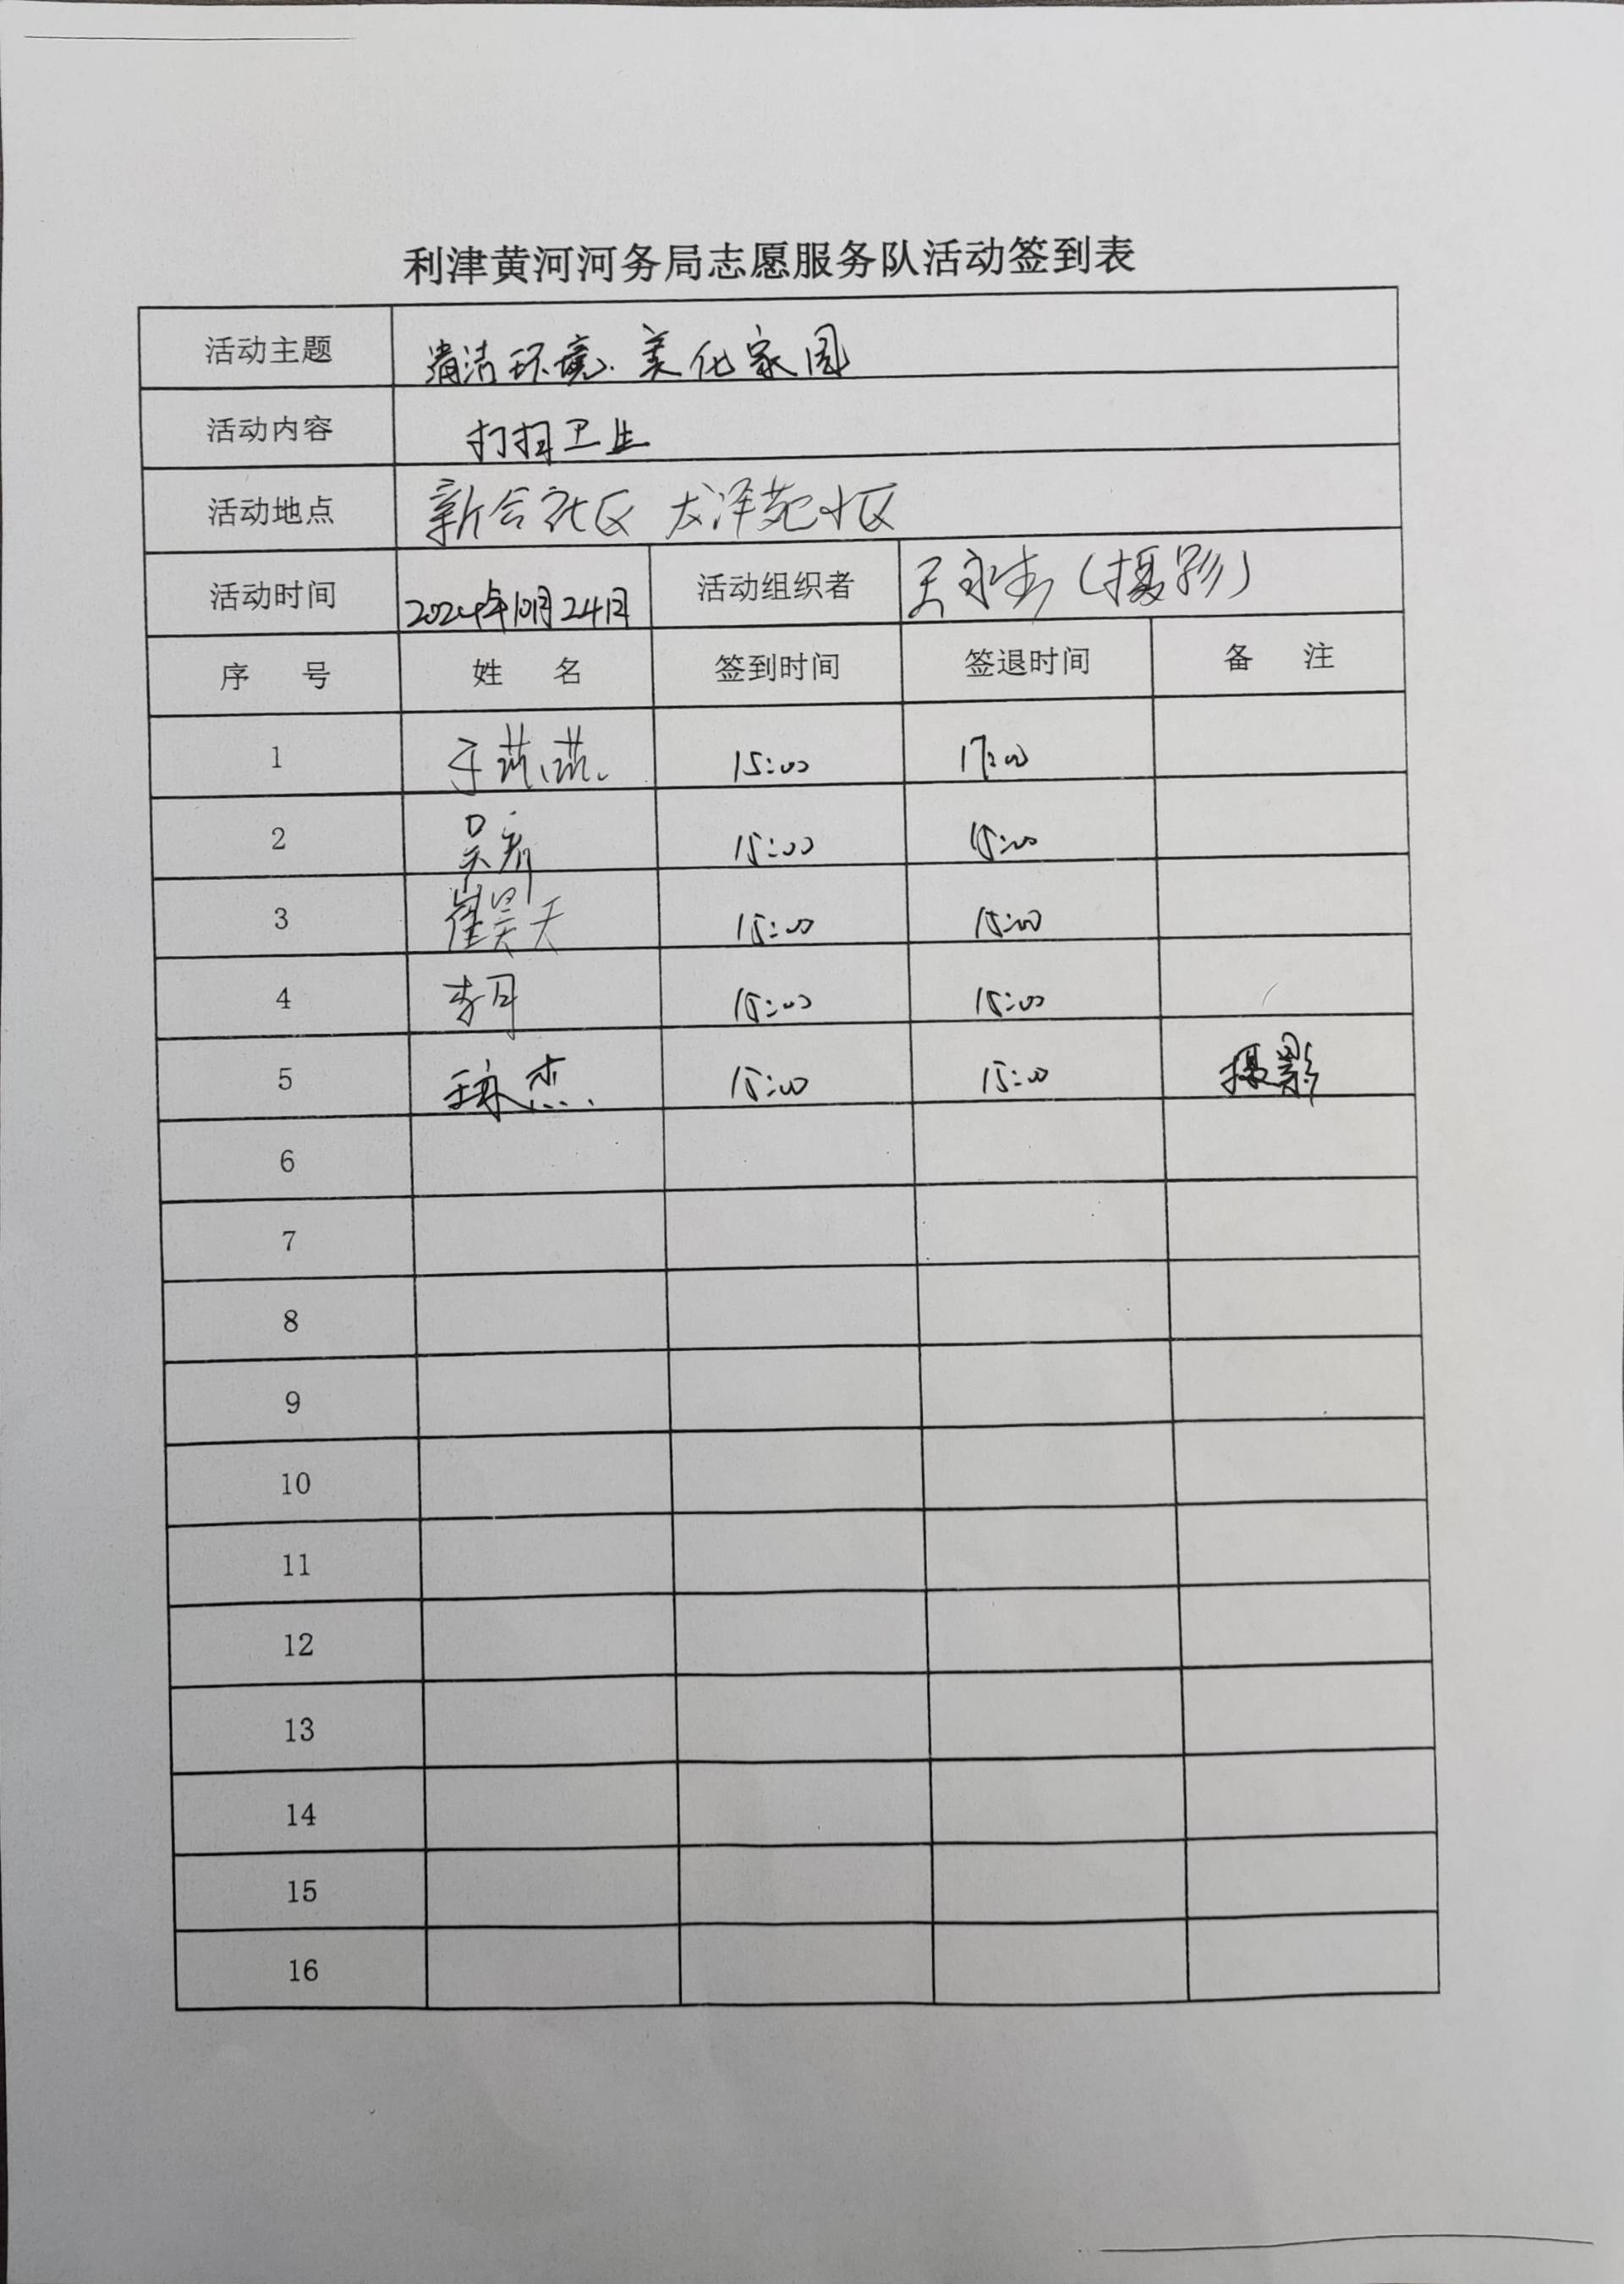 利津黄河河务局志愿服务队活动签到表
活动主题 清洁环境.美化家园
活动内容 打扫卫生
活动地点 新合社区 龙泽苑小区
活动时间 2024年10月24日 活动组织者 王永杰(摄影)
序 号 姓 名 签到时间 签退时间 备 注
1 于蔬蔬 15:00 17:00
2 吴 15:00 15:00
3 崔昊天 15:00 15:00
4 李月 15:00 15:00
5 王永杰 15:00 15:00 摄影
6
7
8
9
10
11
12
13
14
15
16